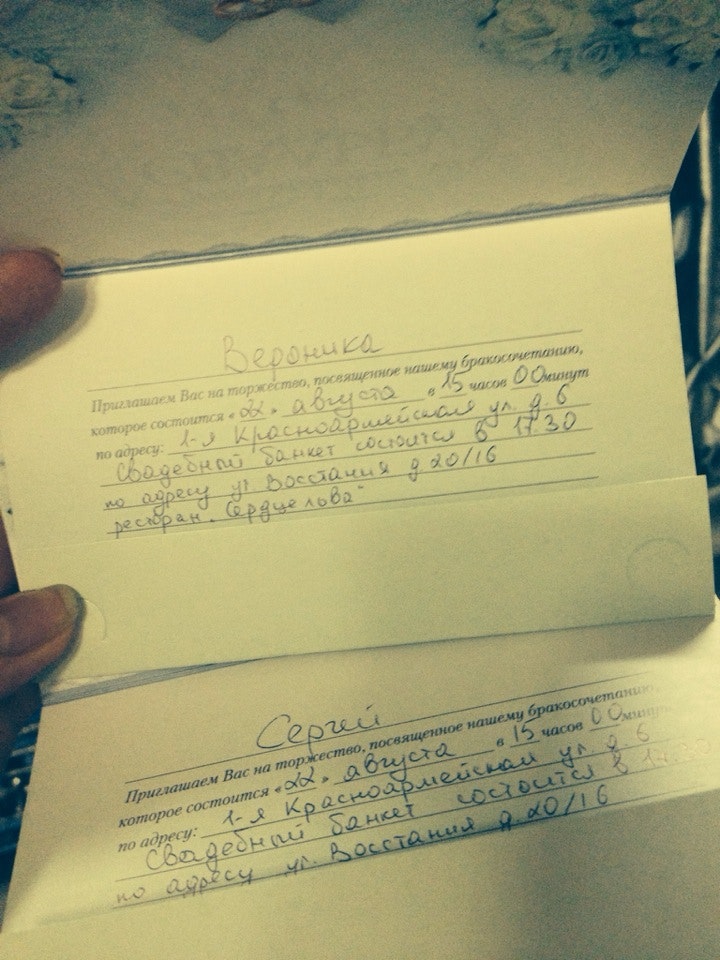 Вероника
Приглашаем Вас на торжество, посвященное нашему бракосочетанию,
которое состоится «22» августа в 15 часов 00 минут
по адресу: 1-я Красноармейская ул. д. 6
Свадебный банкет состоится в 17.30
по адресу ул. Восстания д 20/16
ресторан "Сердце льва"
Сергей
Приглашаем Вас на торжество, посвященное нашему бракосочетанию,
которое состоится «22» августа в 15 часов 00 минут
по адресу: 1-я Красноармейская ул. д 6
Свадебный банкет состоится в
по адресу ул. Восстания д 20/16